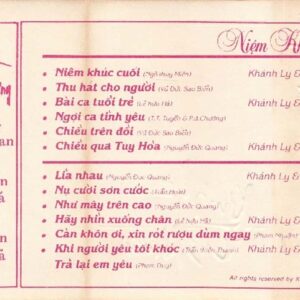 Niệm Kh
Niệm khúc cuối (Ngô thụy Miên) Khánh Ly &
Thu hát cho người (Vũ Đức Sao Biển)
Bài ca tuổi trẻ (Lê hựu Hà) Khánh Ly &
Ngợi ca tình yêu (T.T. Tuyển & P.d.Chương)
Chiều trên đồi (Vũ Đức Sao Biển)
Chiều qua Tuy Hòa (Nguyễn Đức Quang) Khánh Ly &
Lìa nhau (Nguyễn Đức Quang) Khánh Ly &
Nụ cười sơn cước (Tuấn Hoàn)
Như mây trên cao (Nguyễn Đức Quang)
Hãy nhìn xuống chân (Lê Hựu Hà) Khánh Ly &
Càn khôn ơi, xin rót rượu dùm ngay
Khi người yêu tôi khóc (Trần thiện Thanh) Khánh Ly &
Trả lại em yêu (Phạm Duy)
All rights reserved by K